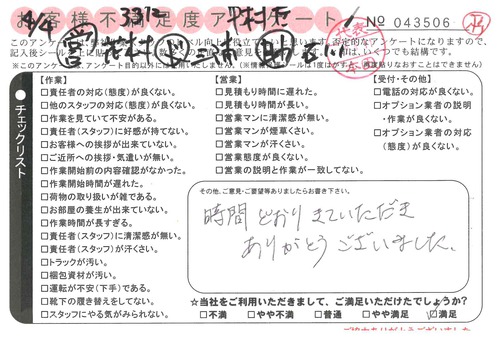 お客様不満足度アンケート!
No 043506
【作業】
□責任者の対応(態度)が良くない。
□他のスタッフの対応(態度)が良くない。
□作業を見ていて不安がある。
□責任者(スタッフ)に好感が持てない。
□お客様への挨拶が出来ていない。
□ご近所への挨拶・気遣いが無い。
□作業開始前の内容確認がなかった。
□作業開始時間が遅れた。
□荷物の取り扱いが雑である。
□お部屋の養生が出来ていない。
□作業時間が長すぎる。
□責任者(スタッフ)に清潔感が無い。
□責任者(スタッフ)が汗くさい。
□トラックが汚い。
□梱包資材が汚い。
□運転が不安(下手)である。
□靴下の履き替えをしてない。
□スタッフにやる気がみられない。
【営業】
□見積もり時間に遅れた。
□見積もり時間が長い。
□営業マンに清潔感が無い。
□営業マンが煙草くさい。
□営業マンが汗くさい。
□営業態度が良くない。
□営業の説明と作業が一致してない。
【受付・その他】
□電話の対応が良くない。
□オプション業者の説明
・作業が良くない。
□オプション業者の対応
(態度)が良くない。
チェックリスト
その他、ご意見・ご要望等ありましたらお書き下さい。
時間どおりきていただき
ありがとうございました。
☆当社をご利用いただきまして、ご満足いただけたでしょうか?
□不満 □やや不満 □普通 □やや満足 □満足